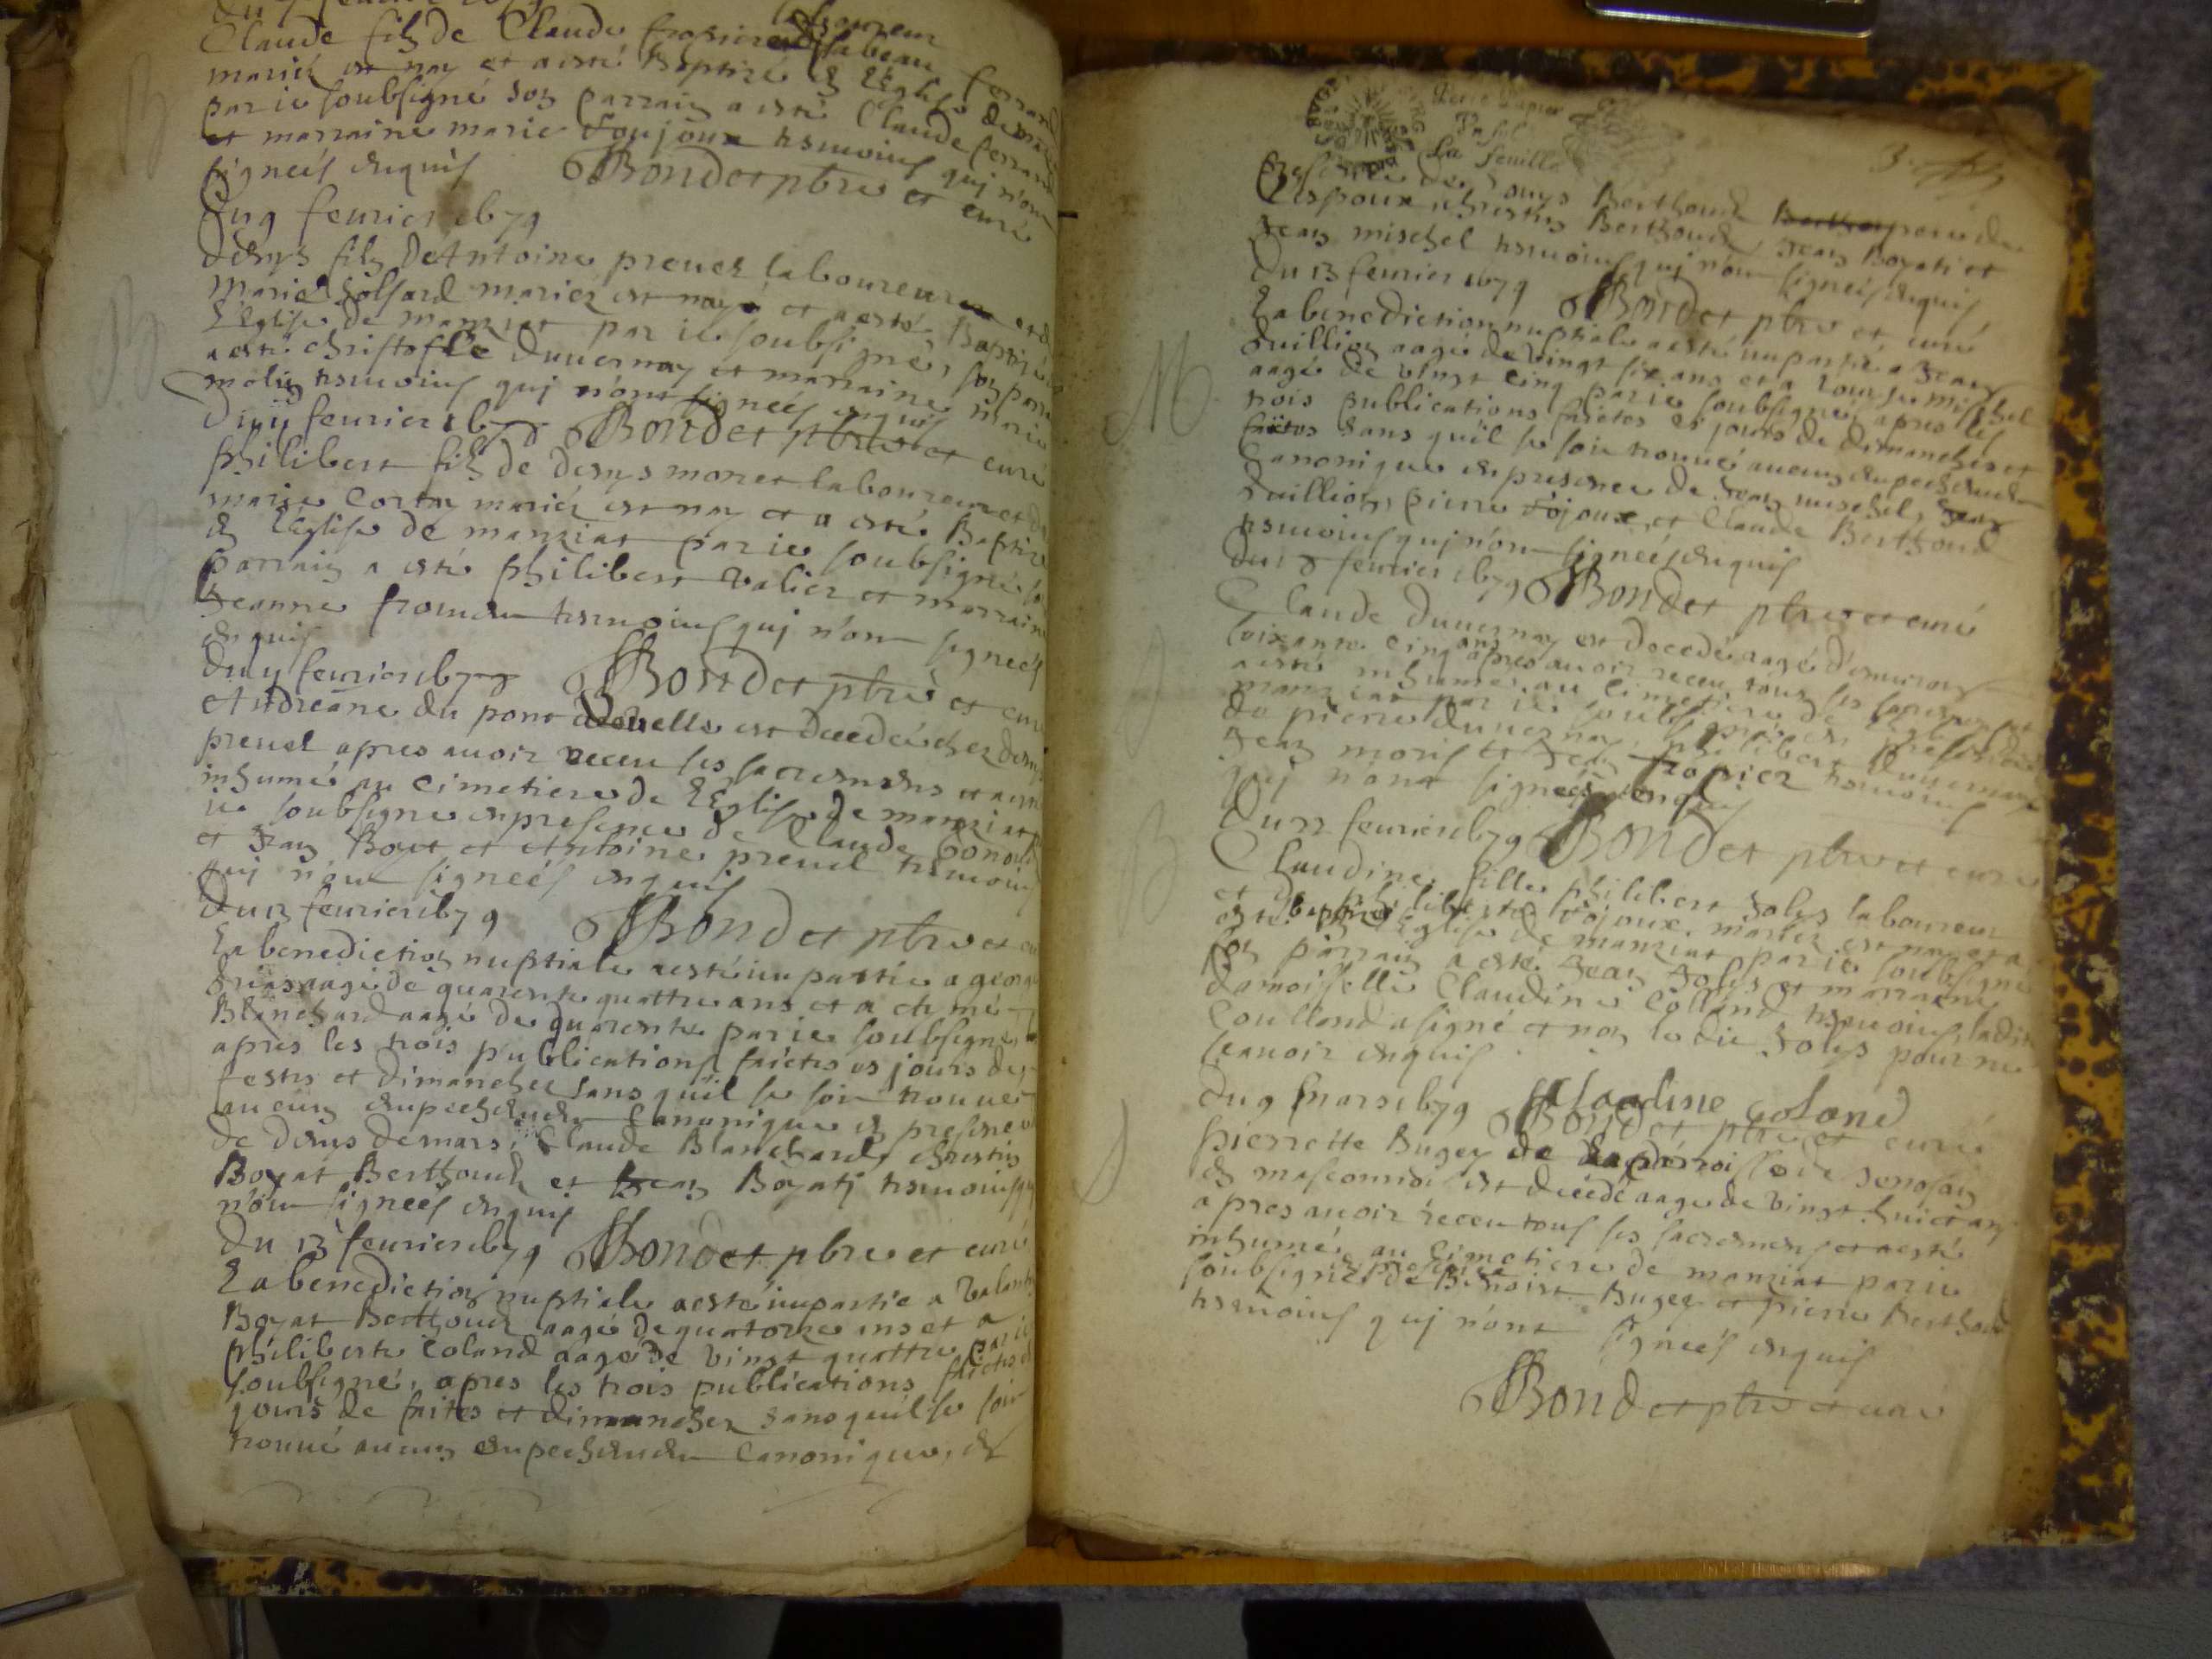 Claude filz de Claude fropier laboureur et Isabeau ferrand
mariéz est nay et a esté Baptizé en l'Eglise de
par ie soubsigné son parrain a esté Claude ferrand
et marraine marie toujoux tesmoins quj n'ont
signeés enquis Bondet pbre et curé
Du 9 feurier 1679
Denys filz De Antoine preuel laboureur et de
Marie mariéz est nay et a esté Baptizé
l'Eglise de manziat par ie soubsigné, son parrain
a esté christofle duuernay et marraine marie
molin tesmoins quj n'ont signeés enquis
Du feurier 1679 Bondet pbre et curé
philibert filz de denys moret laboureur et de
marie Cortay mariéz est nay et a esté Baptizé
en l'Eglise de manziat par ie soubsigné, son
parrain a esté philibert valier et marraine
Jeanne froment tesmoins quj n'ont signeés
enquis
Du 11 feurier 1679 Bondet pbre et curé
Andreane du pont de velle est decedée chez denys
preuel apres auoir receu ses sacremens et a esté
inhumé au cimetiere de l'Eglise de manziat par
ie soubsigné en presence de Claude
et Jean Boyat et Antoine preuel tesmoins
quj n'ont signeés enquis
Du 13 feurier 1679 Bondet pbre et curé
La benediction nuptiale a esté impartie a george
aagé de quarente quattre ans et a
Blanchard aagé de quarente par ie soubsigné
apres les trois publications faictes es jours de
festes et dimanches sans qu'il se soit trouué
aucun empeschement Canonique en presence
de denys demars, Claude Blanchard, christin
Boyat Berthoud et Jean Boyatj tesmoins quj
n'ont signeés enquis
Du 13 feurier 1679 Bondet pbre et curé
La benediction nuptiale a esté impartie a valentin
Boyat Berthoud aagé de quatorze ans et a
philiberte Coland aagé de vingt quattre par ie
soubsigné, apres les trois publications faictes es
jours de faites et dimanches sans qu'il se soit
trouué aucun empeschement Canonique, en
La feuille
presence de Denys Berthoud pere de
l'espoux christin Berthoud Jean Boyati et
Jean mischel tesmoins quj n'ont signeés enquis
Du 13 feurier 1679 Bondet pbre et curé
La benediction nuptiale a esté impartie a Jean
duillion aagé de vingt six ans et a mischel
aagé de vingt cinq par ie soubsigné apres les
trois publications faictes es jours de dimanches et
faites sans qu'il se soit trouué aucun empeschement
Canonique en presence de Jean mischel, Jean
duillion, pierre tojoux, et Claude Berthoud
tesmoins quj n'ont signeés enquis
Du feurier 1679 Bondet pbre et curé
Claude duuernay est decedé aagé d'enuiron
soixante cinq ans apres auoir receu tous ses sacremens et
a esté inhumé au cimetiere de l'Eglise de
manziat par ie soubsigné en presence
de pierre duuernay, philibert duuernay
Jean moris et Jean fropier tesmoins
quj n'ont signeés enquis
Du 22 feurier 1679 Bondet pbre et curé
Claudine fille philibert Jolys laboureur
et de philiberte tojoux mariéz est nay et a
esté baptizé en l'Eglise de manziat par ie soubsigné
son parrain a esté Jean Jolys et marraine
damoisselle Claudine Colland tesmoins, ladite
Coulland a signé et non le dit Jolys pour ne
sçauoir enquis.
Du 9 mars 1679 Claudine Coland
Bondet pbre et curé
pierrette Bugey de la parroisse de senosan
en masconnois est decedé aagé de vingt huict ans
apres auoir receu tous ses sacremens et a esté
inhumé au Cimetiere de manziat par ie
soubsigné en presence de Benoist Bugey et pierre Berthoud
tesmoins quj n'ont signeés enquis
Bondet pbre et curé